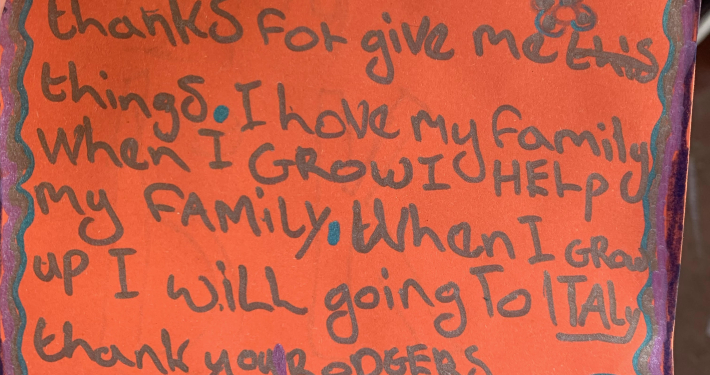 thanks for give me this
things. I hove my family
When I GROW I HELP
my FAMiLY. When I GROW
up I wiLL going To ITALy
thank you RODGERS